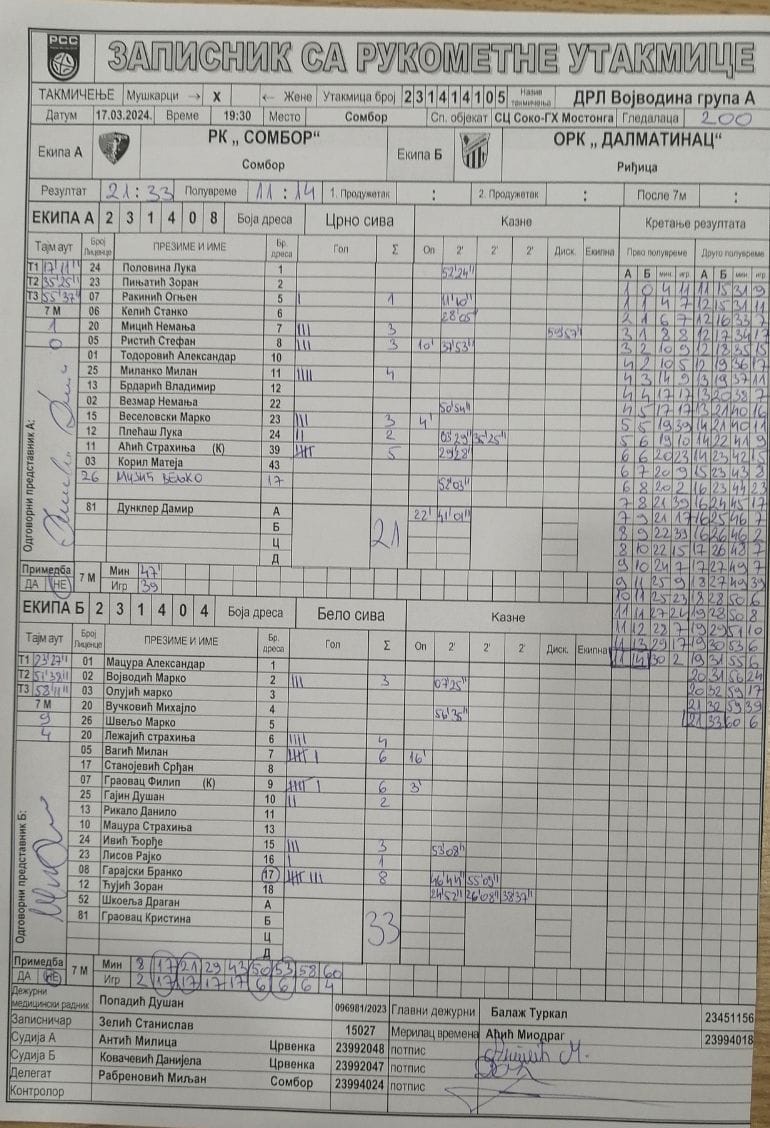 РСС
ЗАПИСНИК СА РУКОМЕТНЕ УТАКМИЦЕ
ТАКМИЧЕЊЕ Мушкарци → X ← Жене Утакмица број 2 3 1 4 1 4 1 0 5 Назив такмичења ДРЛ Војводина група А
Датум 17.03.2024. Време 19:30 Место Сомбор Сп. објекат СЦ Соко-ГХ Мостонга Гледалаца 200
Екипа А РК „ СОМБОР“ Екипа Б ОРК „ ДАЛМАТИНАЦ“
Сомбор Риђица
Резултат 21:33 Полувреме 11:14 1. Продужетак : 2. Продужетак : После 7м :
ЕКИПА А 2 3 1 4 0 8 Боја дреса Црно сива Казне Кретање резултата
Тајм аут Број Лиценце ПРЕЗИМЕ И ИМЕ Бр. дреса Гол Σ Оп 2' 2' 2' Диск. Екипна Прво полувреме Друго полувреме
А Б мин. игр А Б мин игр
T1 17'11" 24 Половина Лука 1 52'24"
T2 35'25" 23 Пињатић Зоран 2
T3 55'37" 07 Ракинић Огњен 5 I 1 11'10"
7 М 06 Келић Станко 6 28'05"
1 20 Мицић Немања 7 III 3 59'57"
0 05 Ристић Стефан 8 III 3 10' 37'53"
01 Тодоровић Александар 10
25 Миланко Милан 11 IIII 4
13 Брдарић Владимир 12
02 Везмар Немања 22 50'54"
15 Веселовски Марко 23 III 3 4'
12 Плећаш Лука 24 II 2 03'29" 35'25"
11 Аћић Страхиња (К) 39 IIII 5 29'28"
03 Корил Матеја 43
26 МУЗИЋ ВЕЉКО 17 52'03"
81 Дунклер Дамир А 22' 41'01"
Б
Ц
Д
21
Одговорни представник А:
Примедба ДА НЕ 7 М Мин 47'
Игр 39
1 0 4 11 11 15 31 9
1 1 4 7 12 15 31 11
2 1 6 7 12 16 33 7
3 1 8 8 12 17 34 17
3 2 10 9 12 18 35 15
4 2 10 5 12 19 36 17
4 3 14 9 13 19 37 11
4 4 17 17 13 20 38 7
4 5 17 17 13 21 40 16
5 5 19 39 14 21 40 11
5 6 19 10 14 22 41 9
6 6 20 23 14 23 42 15
6 7 20 9 15 23 43 8
6 8 20 2 16 23 44 23
7 8 21 39 16 24 45 17
7 9 21 17 16 25 46 7
8 9 22 39 16 26 46 2
8 10 22 15 17 26 48 7
9 10 24 7 17 27 49 7
9 11 25 9 18 27 49 39
10 11 25 23 18 28 50 6
11 11 27 24 19 28 50 8
11 12 28 7 19 29 51 10
11 13 29 17 19 30 53 6
11 14 30 2 19 31 55 6
20 31 56 24
20 32 59 17
21 32 59 39
21 33 60 6
ЕКИПА Б 2 3 1 4 0 4 Боја дреса Бело сива Казне
Тајм аут Број Лиценце ПРЕЗИМЕ И ИМЕ Бр. дреса Гол Σ Оп 2' 2' 2' Диск. Екипна
T1 23'27" 01 Мацура Александар 1
T2 51'38" 02 Војводић Марко 2 III 3 07'25"
T3 58'11" 03 Олујић марко 3
7 М 20 Вучковић Михајло 4 56'35"
9 26 Швељо Марко 5
4 20 Лежајић страхиња 6 IIII 4
05 Вагић Милан 7 IIII I 6 16'
17 Станојевић Срђан 8
07 Граовац Филип (К) 9 IIII I 6 3'
25 Гајин Душан 10 II 2
13 Рикало Данило 11
10 Мацура Страхиња 13
24 Ивић Ђорђе 15 III 3 53'08"
23 Лисов Рајко 16 I 1
08 Гарајски Бранко 17 IIII III 8 46'44" 55'03"
12 Ћујић Зоран 18 24'52" 26'08" 38'37"
52 Шкоеља Драган А
81 Граовац Кристина Б
Ц
Д
33
Одговорни представник Б:
Примедба ДА НЕ 7 М Мин 8 17 21 29 43 50 53 58 60
Игр 2 17 17 17 17 6 6 6 4
Дежурни медицински радник Попадић Душан 096981/2023 Главни дежурни Балаж Туркал 23451156
Записничар Зелић Станислав 15027 Мерилац времена Аћић Миодраг 23994018
Судија А Антић Милица Црвенка 23992048 потпис
Судија Б Ковачевић Данијела Црвенка 23992047 потпис
Делегат Рабреновић Миљан Сомбор 23994024 потпис
Контролор